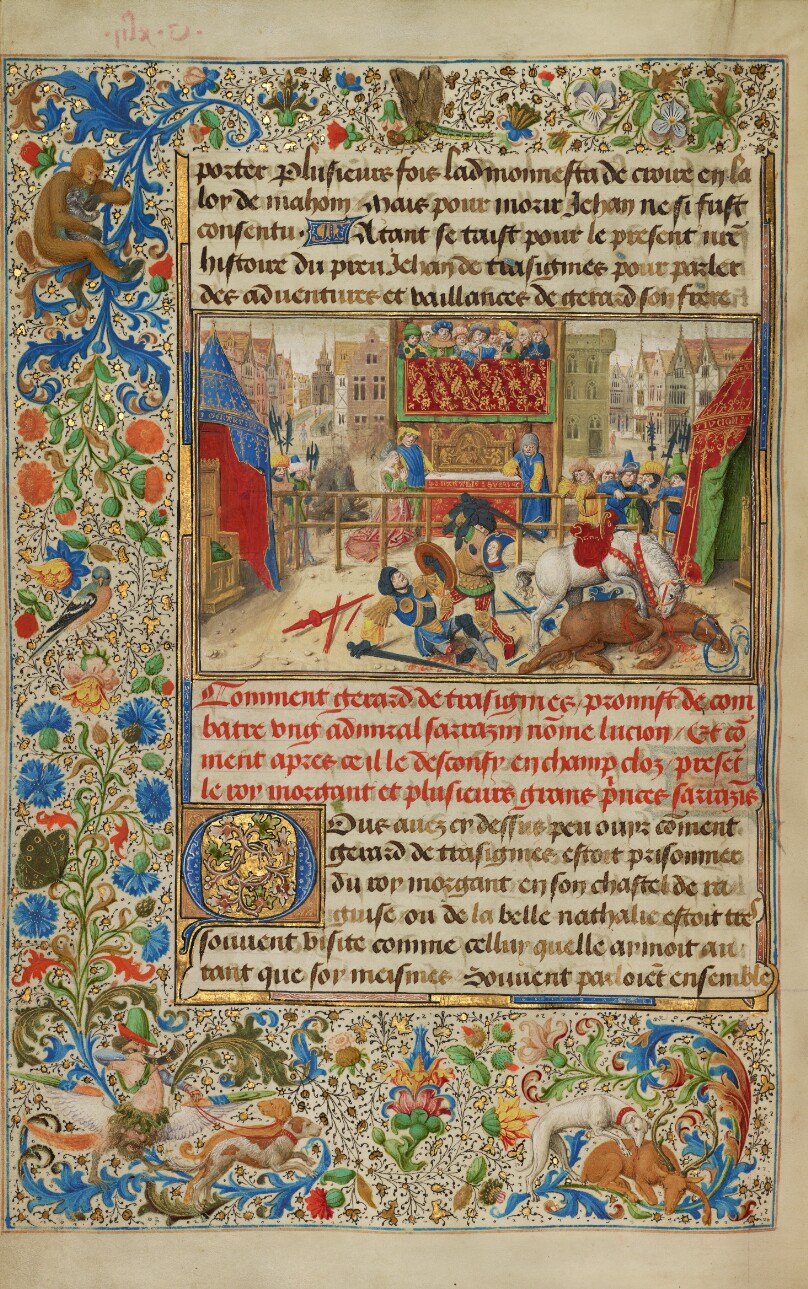 porter Plusieurs fois ladmonnesta de croire en la
loy de mahom Mais pour morir Jehan ne si fust
consentu. Atant se taist pour le present nr̄e
histoire du preu Jehan de trasignies pour parler
des aduentures et vaillances de gerard son frere
Comment gerard de trasignies, promist de com
batre vng admiral sarrazin nōme lucion, Et cō
ment apres ce il le desconfy en champ cloz, presēt
le roy morgant et plusieurs grans p̄nces sarrazīs
Vous auez cy dessus peu ouyr cōment
gerard de trasignies estoit prisonnier
du roy morgant en son chastel de ra
guise ou de la belle nathalie estoit tres
souuent visite comme celluy quelle aymoit au
tant que soy meismes Souuent parloiēt ensemble